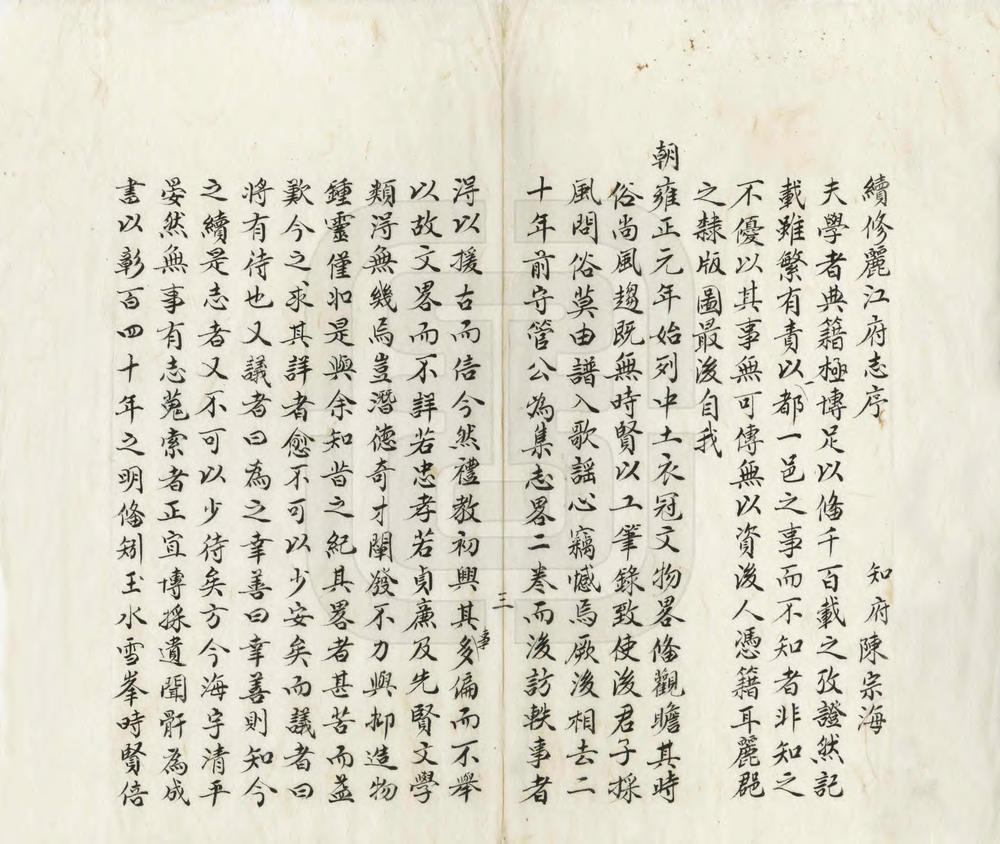 續修麗江府志序　　知府陳宗海
夫學者典籍極博足以俻千百載之攷證然記
載雖繁有責以一都一邑之事而不知者非知之
不優以其事無可傳無以資後人憑籍耳麗郡
之隸版圖最後自我
朝雍正元年始列中土衣冠文物畧俻觀瞻其時
俗尚風趨既無時賢以工筆錄致使後君子採
風問俗莫由譜入歌謡心竊憾焉厥後相去二
十年前守管公為集志畧二卷而後訪軼事者
三
得以援古而信今然禮教初興其事多偏而不舉
以故文畧而不詳若忠孝若貞廉及先賢文學
類得無幾焉豈潛德奇才闡發不力與抑造物
鍾靈僅如是與余知昔之紀其畧者甚苦而益
歎今之求其詳者愈不可以少安矣而議者曰
將有待也又議者曰為之幸善曰幸善則知今
之續是志者又不可以少待矣方今海宇清平
晏然無事有志蒐索者正宜博採遺聞彚為成
書以彰百四十年之明俻矧玉水雪峯時賢倍